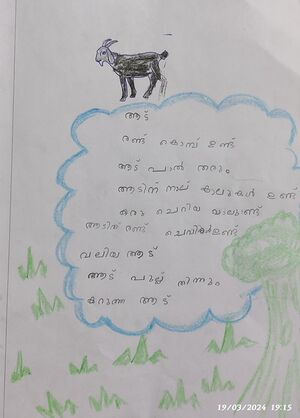 ആട്
രണ്ട് കൊമ്പ് ഉണ്ട്
ആട് പാൽ തരും
ആടിന് നാല് കാലുകൾ ഉണ്ട്
ഒരു ചെറിയ വാലുണ്ട്
ആടിന് രണ്ട് ചെവികൾഉണ്ട്
വലിയ ആട്
ആട് പുല്ല് തിന്നും
കറുത്ത ആട്
19/03/2024 19:15